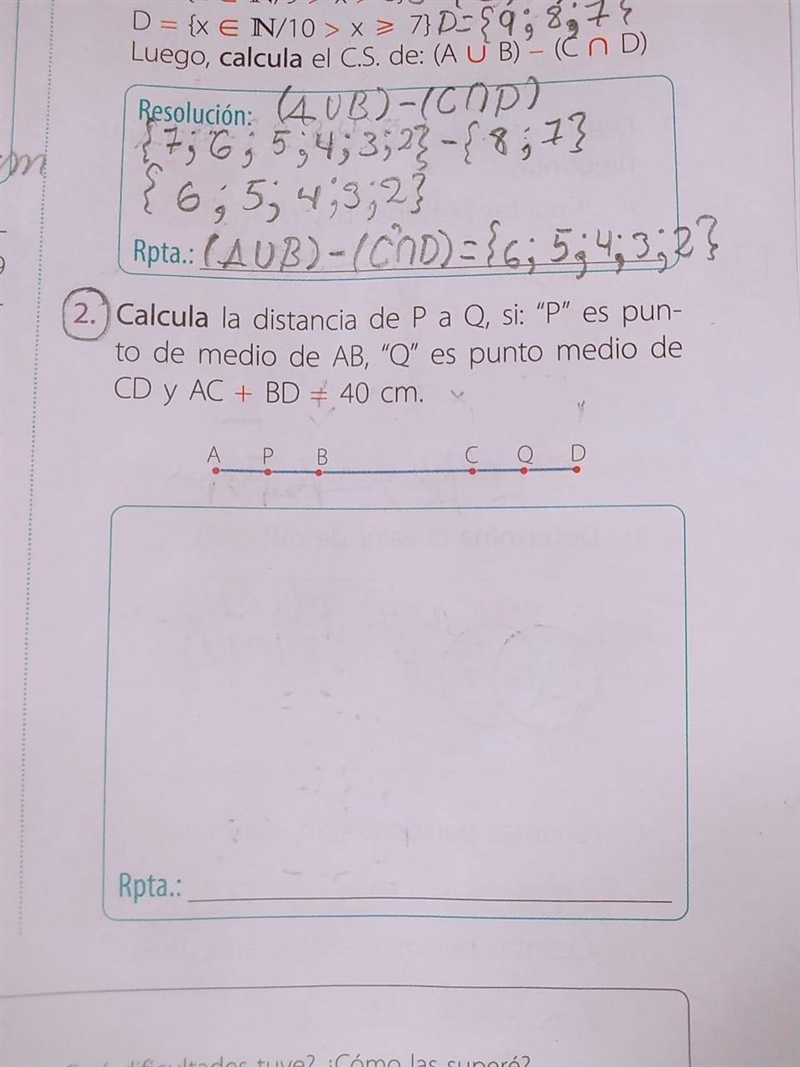 D = {x ∈ ℕ/10 > x ⩾ 7} D={9; 8; 7}
Luego, calcula el C.S. de: (A ∪ B) − (C ∩ D)
Resolución: (A∪B)−(C∩D)
{7; 6; 5; 4; 3; 2} − {8; 7}
{6; 5; 4; 3; 2}
Rpta.: (A∪B)−(C∩D)={6; 5; 4; 3; 2}
2. Calcula la distancia de P a Q, si: “P” es pun-
to de medio de AB, “Q” es punto medio de
CD y AC + BD = 40 cm.
A P B C Q D
Rpta.:
dificultades tuve? ¿Cómo las superé?